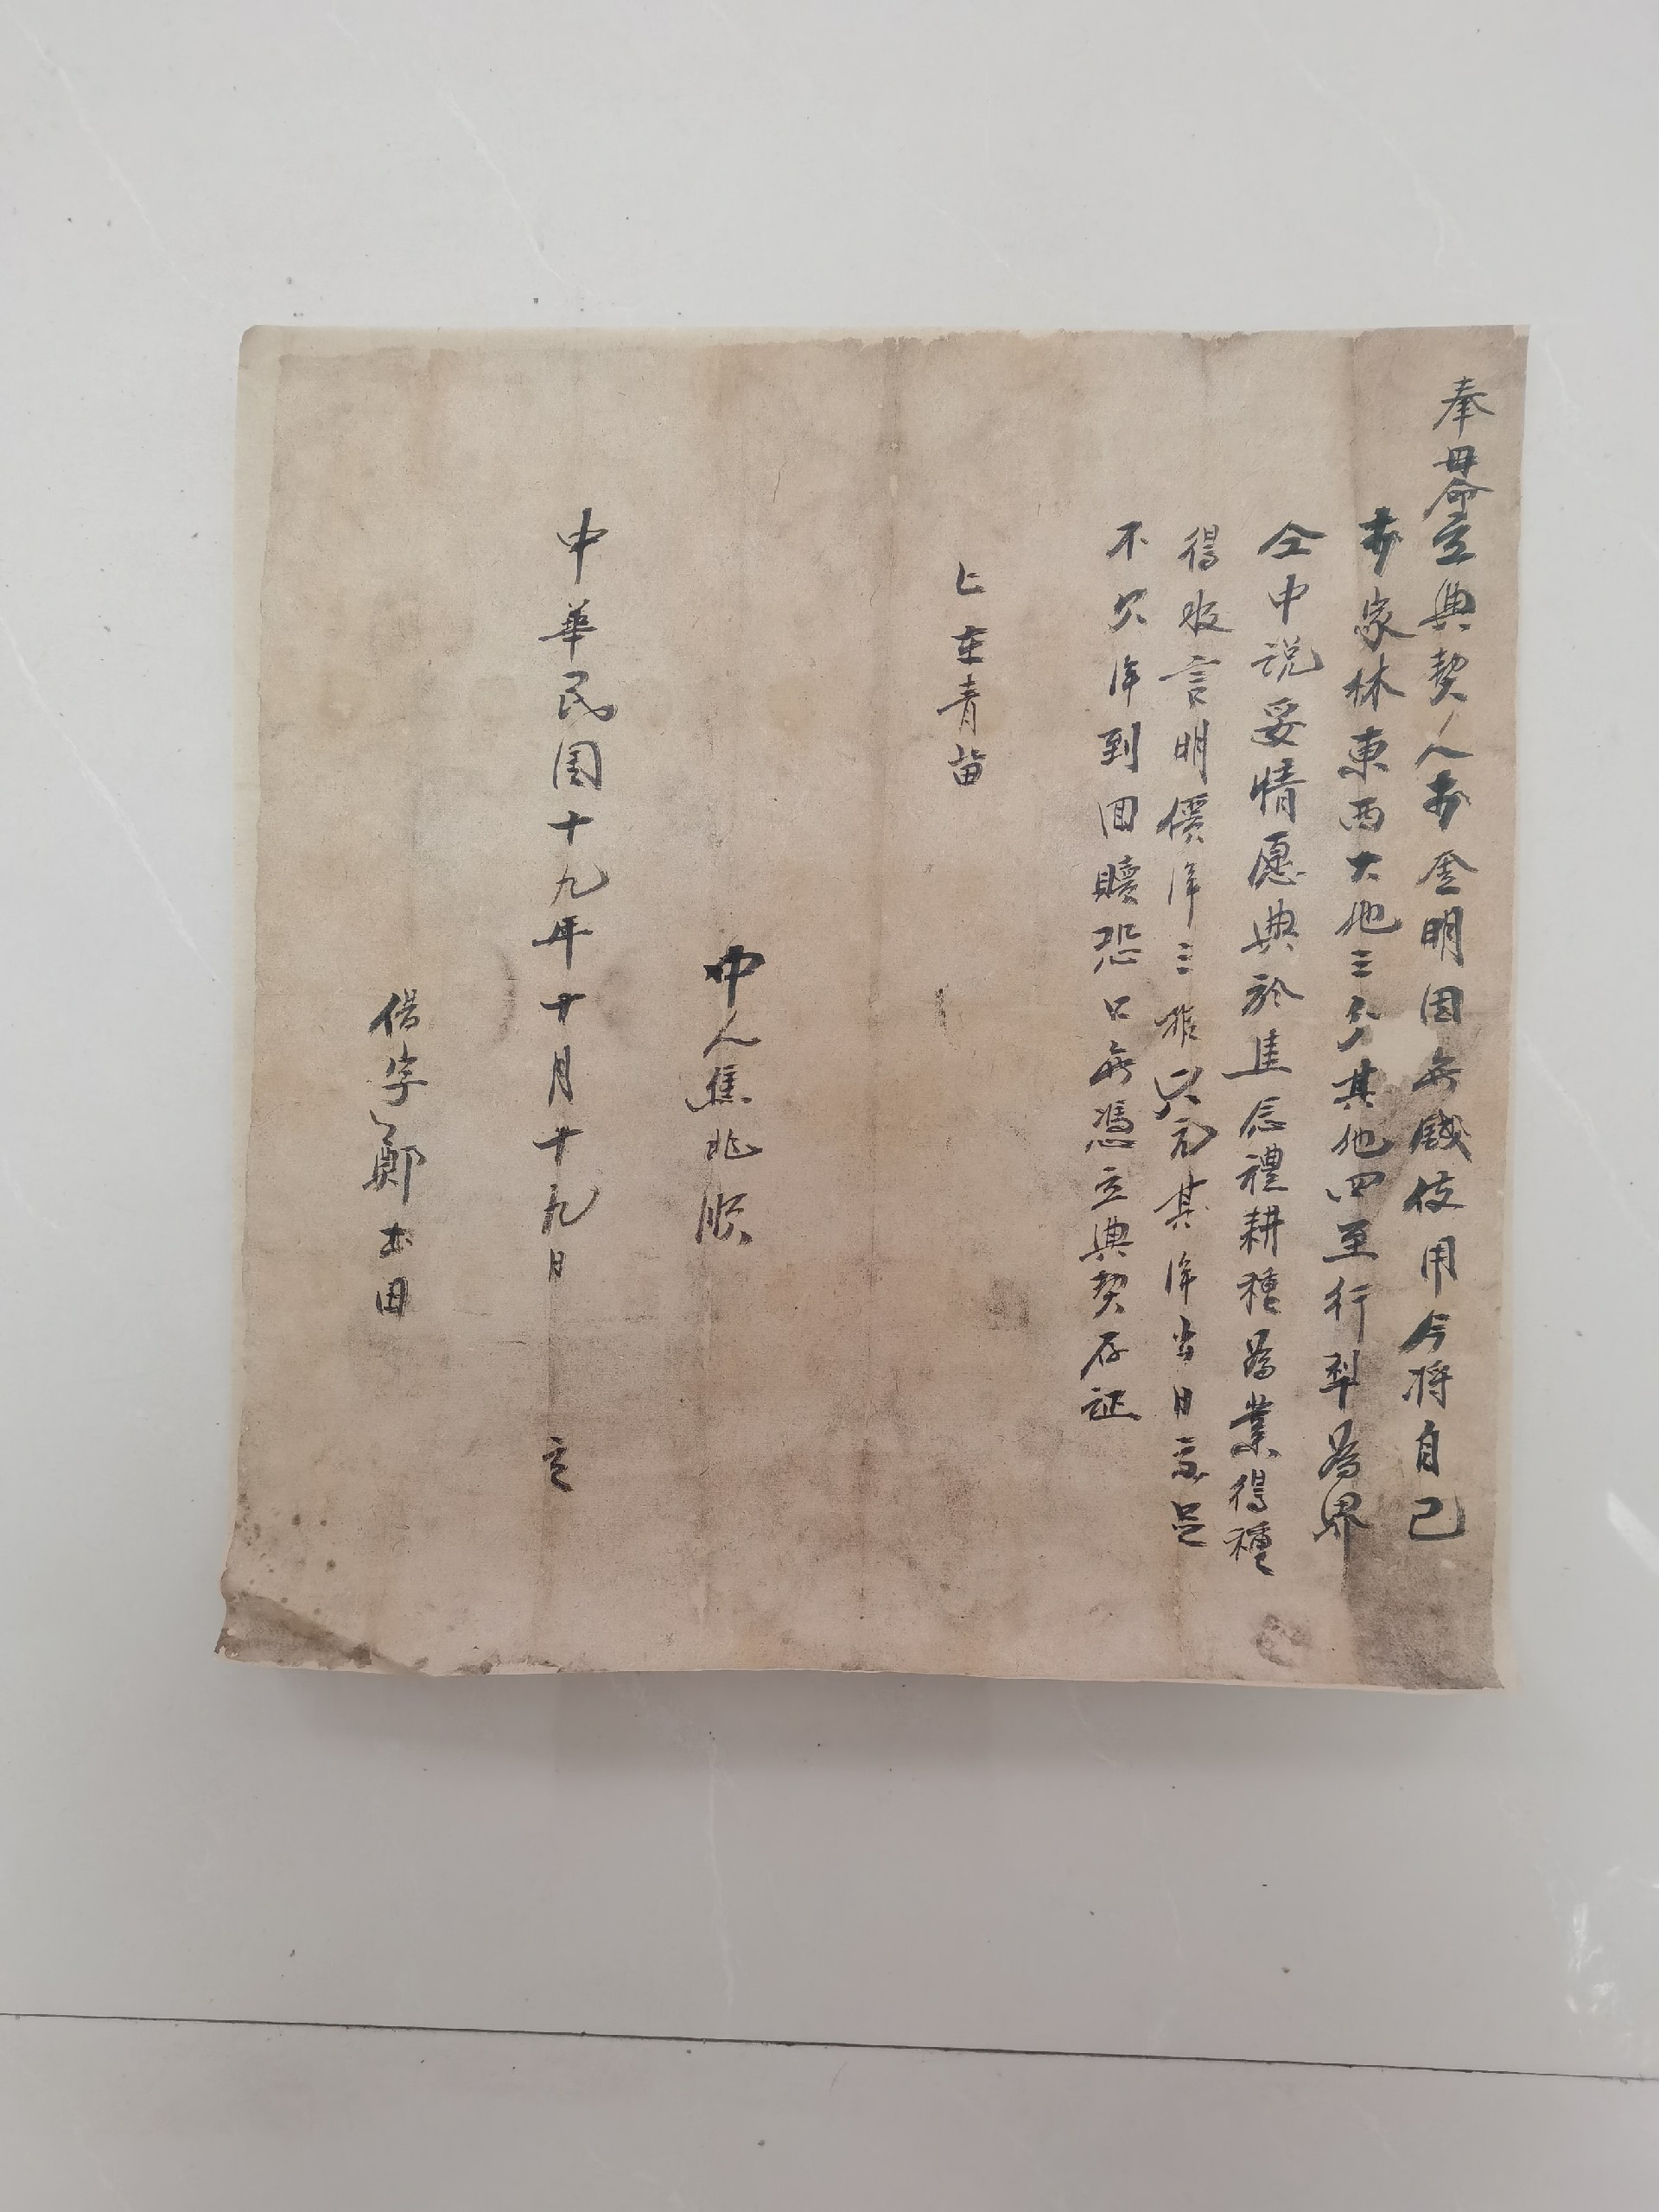 奉母命立典契人郝金明因無錢使用今将自己
郝家林東西大地三分其地四至行犁為界
仝中说妥情愿典於孟宏禮耕種為業得種
得收言明價洋三元其洋当日交足
不欠洋到回贖恐口無憑立典契存証
上主青苗
中人焦兆順
中華民国十九年十月十九日 立
借字鄭田